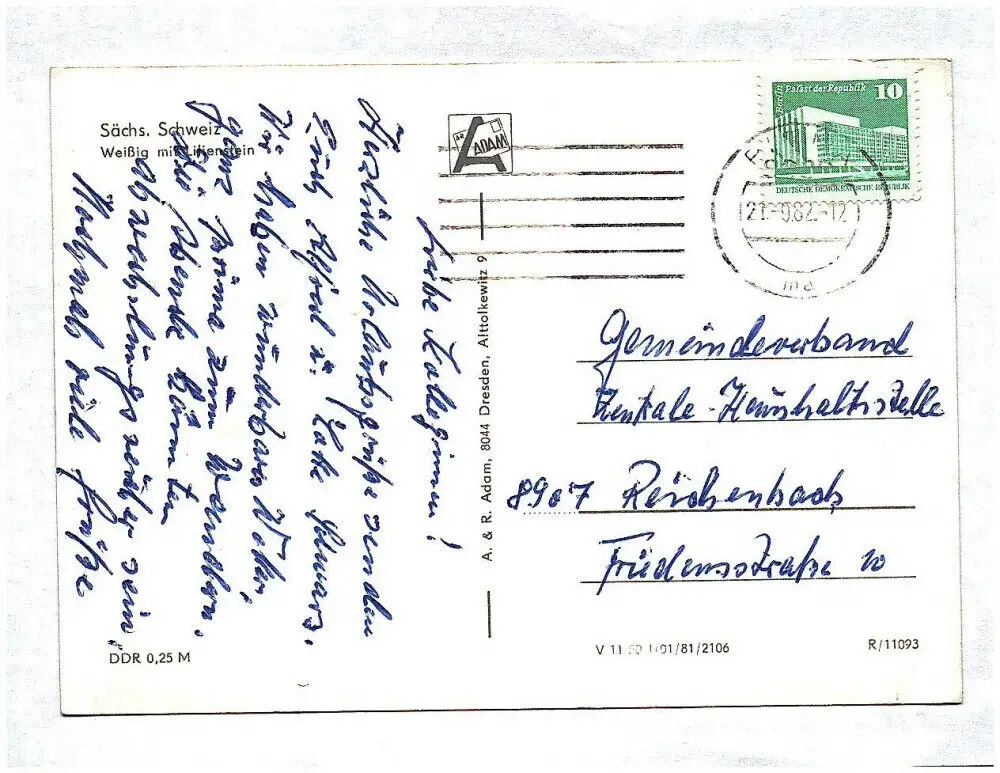 Sächs. Schweiz
Weißig mit Lilienstein
ADAM
Berlin Palast der Republik 10
DEUTSCHE DEMOKRATISCHE REPUBLIK
82.-12
Liebe Kolleginnen!
Herzliche Urlaubsgrüße senden
Euch Alfred u. Schwarz.
Wir haben wunderbares Wetter,
ganz prima zum Wandern.
Die Abende könnten
abwechslungsreicher sein.
Nochmals viele Grüße
A. & R. Adam, 8044 Dresden, Alttolkewitz 9
Gemeindeverband
Zentrale Haushaltsstelle
8907 Reichenbach
Friedensstraße 10
DDR 0,25 M
V 11 50 1/01/81/2106
R/11093